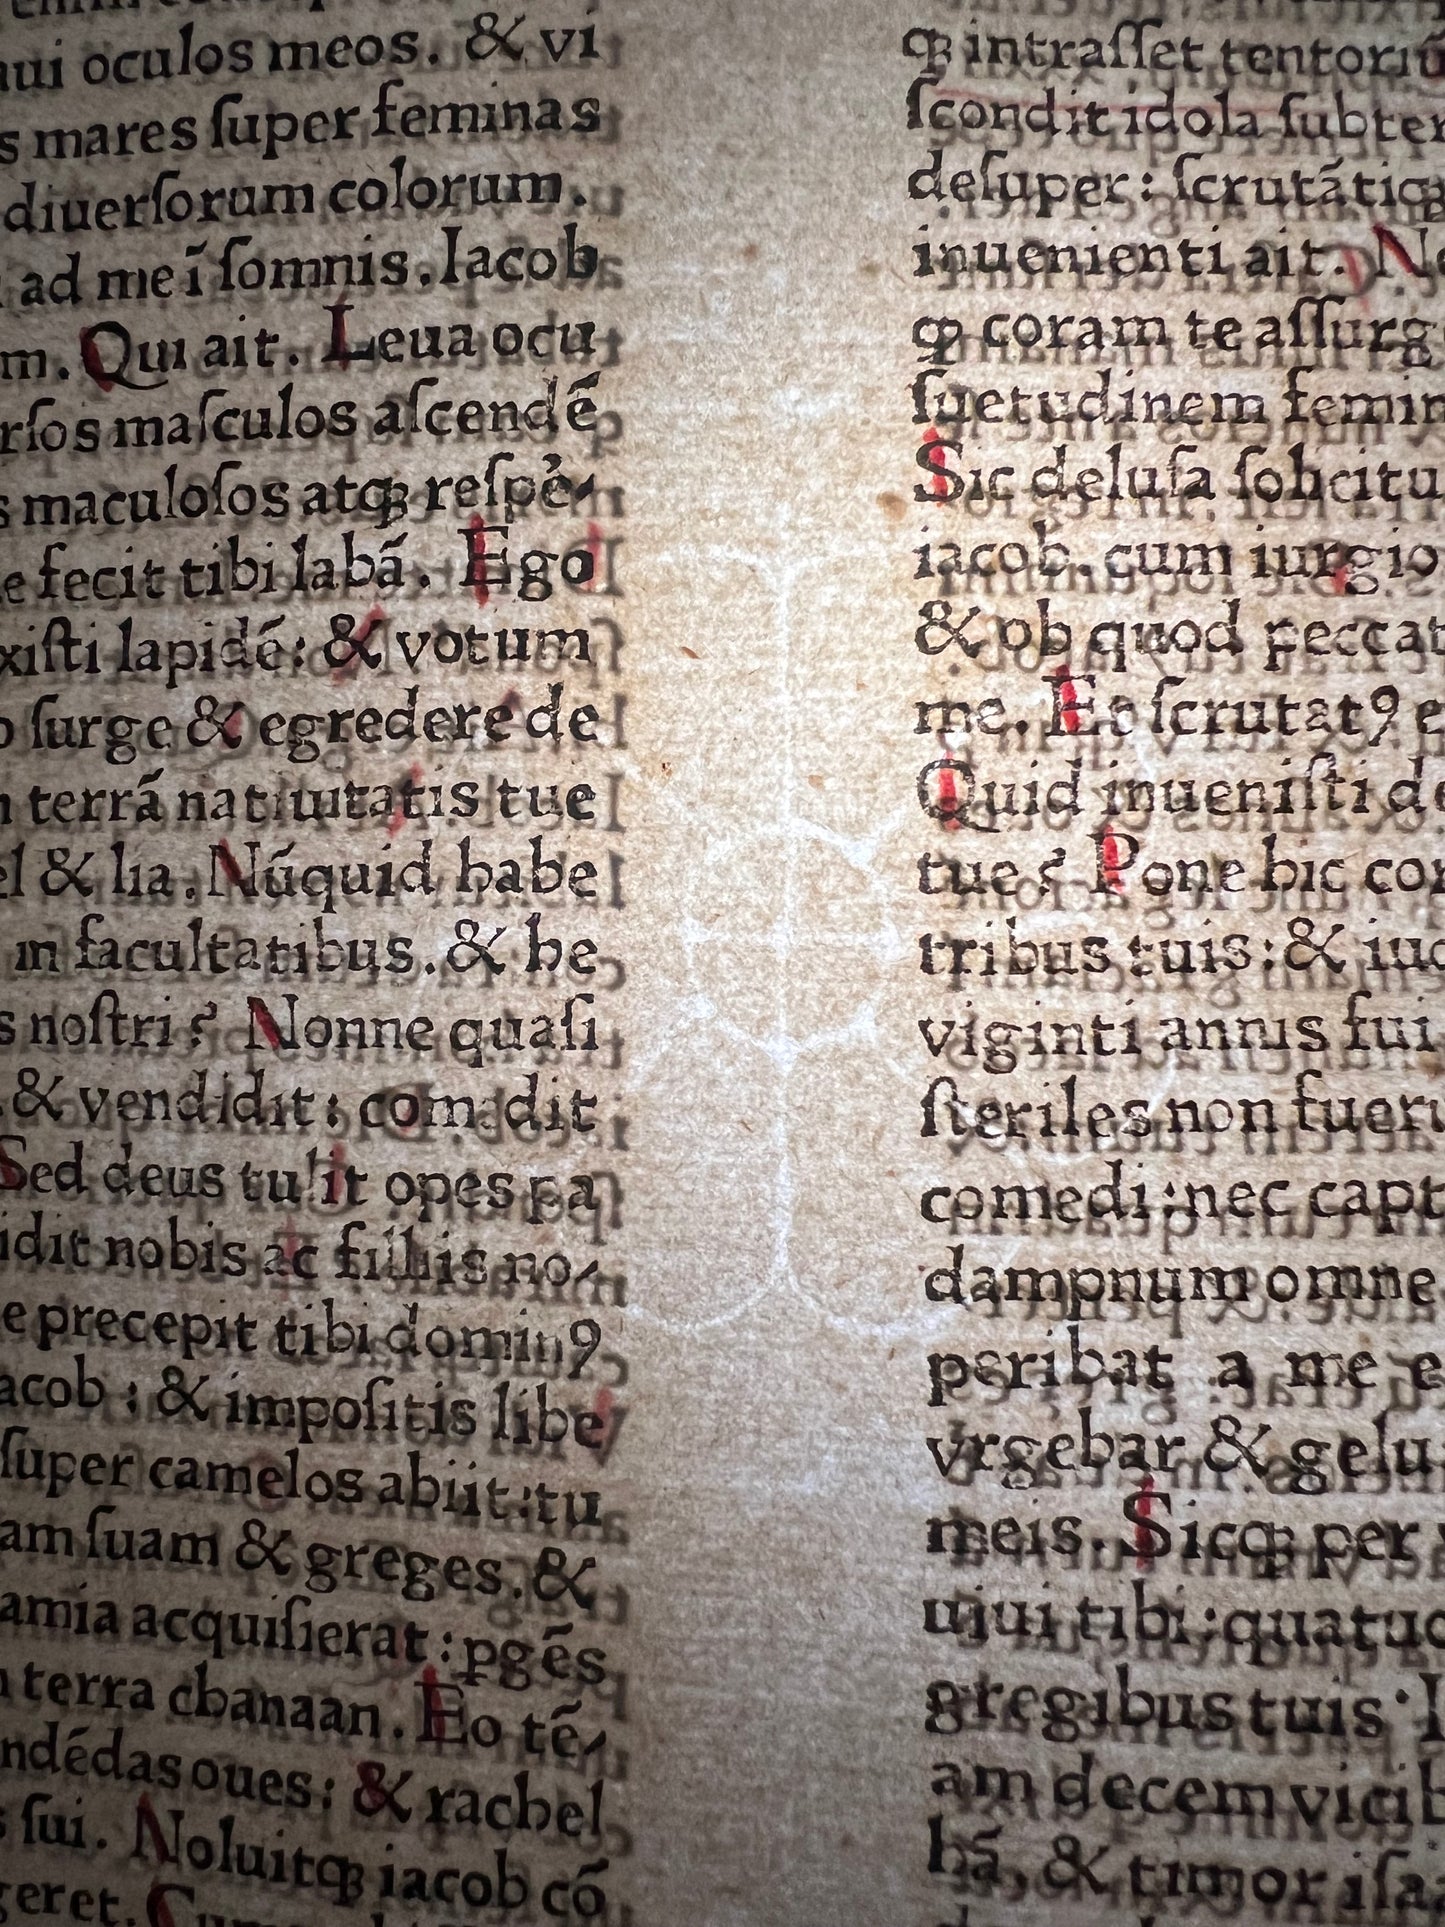 oculos meos. & vi
mares ſuper feminas
diuerſorum colorum.
ad me ī ſomnis. Iacob
m. Qui ait. Leua ocu
rſos maſculos aſcendē
maculoſos atqꝫ reſpē
e fecit tibi labā. Ego
xiſti lapidē: & votum
ſurge & egredere de
terrā natiuitatis tue
el & lia. Nūquid habe
in facultatibus. & he
s noſtri? Nonne quaſi
& vendidit: comedit
Sed deus tulit opes pa
idit nobis ac filiis no
e precepit tibi dominꝰ
acob: & impoſitis libe
ſuper camelos abiit: tu
am ſuam & greges. &
amia acquiſierat: pgēs
terra chanaan. Eo tē
ndēdas oues: & rachel
ſui. Noluitqꝫ iacob cō
geret.
ꝙ intraſſet tentoriū
ſcondit idola ſubter
deſuper: ſcrutātiqꝫ
inuenienti ait. Ne
ꝙ coram te aſſurg
ſuetudinem femin
Sic deluſa ſolicitu
iacob. cum iurgio
& ob quod peccat
me. Et ſcrutatꝰ e
Quid inueniſti de
tue? Pone hic cor
tribus tuis: & iud
viginti annis fui
ſteriles non fueru
comedi: nec capt
dampnum omne
peribat a me e
vrgebar & gelu
meis. Sicqꝫ per
uiui tibi: quatuo
gregibus tuis.
am decem vicib
bā. & timor iſa